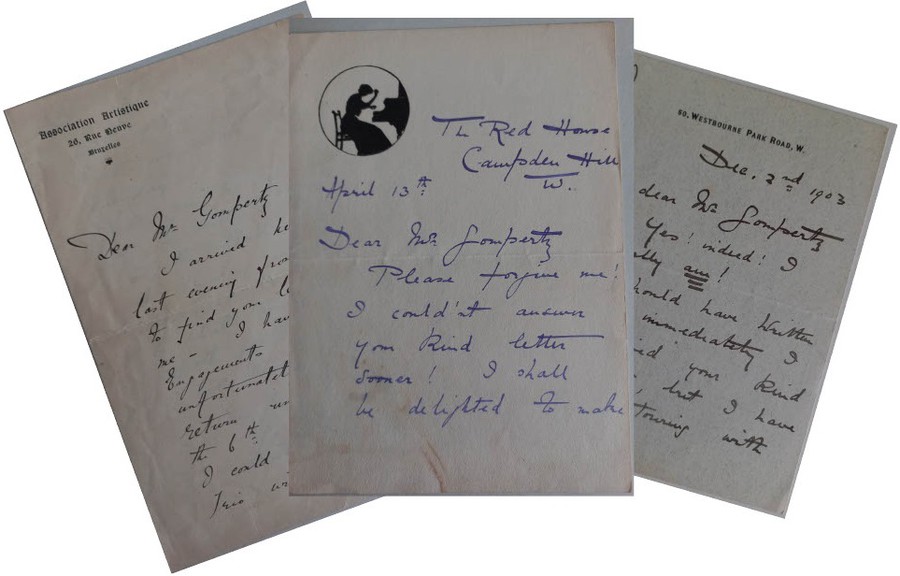 Association Artistique
26, Rue Neuve
Bruxelles
Dear Mr Gompertz
I arrived
last evening from
to find your
me - I hav
Engagements
unfortunatel
return
the 6th
I could
Trio
The Red House
Campden Hill
W.
April 13th
Dear Mr Gompertz
Please forgive me!
I could'nt answer
your kind letter
sooner! I shall
be delighted to make
60, WESTBOURNE PARK ROAD, W.
Dec. 2nd 1903
dear Mr Gompertz
Yes! indeed! I
am!
hould have Written
immediately I
ed your kind
, but I have
Touring with